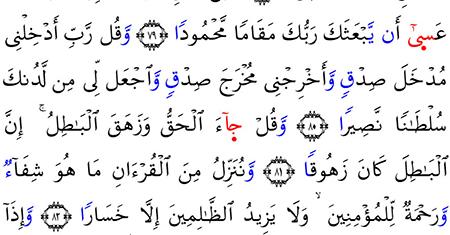 عَسىٰٓ أَن يَّبْعَثَكَ رَبُّكَ مَقَامًا مَّحْمُودًا ﴿٧٩﴾ وَّقُل رَّبِّ أَدْخِلْنِى
مُدْخَلَ صِدْقٍ وَّأَخْرِجْنِى مُخْرَجَ صِدْقٍ وَّاجْعَل لِّى مِن لَّدُنكَ
سُلْطَـٰنًا نَّصِيرًا ﴿٨٠﴾ وَّقُلْ جَآءَ الْحَقُّ وَزَهَقَ الْبَـٰطِلُ ۚ إِنَّ
الْبَـٰطِلَ كَانَ زَهُوقًا ﴿٨١﴾ وَّنُنَزِّلُ مِنَ الْقُرْءَانِ مَا هُوَ شِفَآءٌ
وَّرَحْمَةٌ لِّلْمُؤْمِنِينَ ۙ وَلَا يَزِيدُ الظَّـٰلِمِينَ إِلَّا خَسَارًا ﴿٨٢﴾ وَّإِذَآ